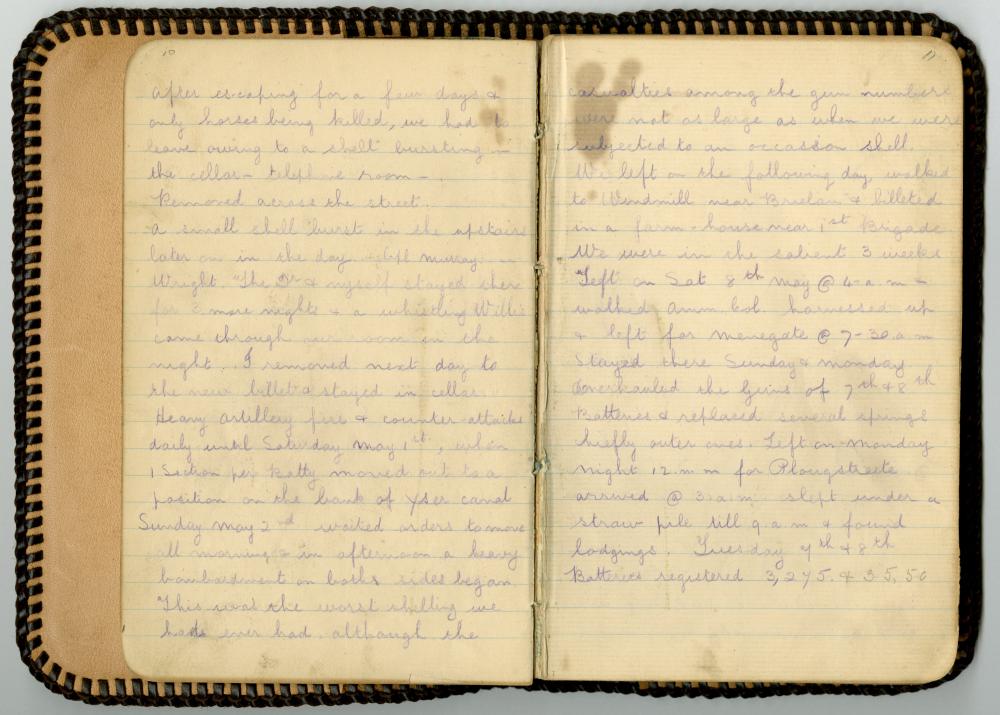 10
After escaping for a few days &
only horses being killed, we had to
leave owing to a shell bursting in
the cellar - telephone room -
Removed across the street.
A small shell burst in the upstairs
later on in the day. Murray
Wright. The Dr & myself stayed there
for 3 more nights & a whistling Willie
came through our room in the
night. I removed next day to
the new billet & stayed in cellar
Heavy artillery fire & counter-attacks
daily until Saturday May 1st, when
1 Section per Batty moved out to a
position on the bank of Yser canal
Sunday May 2nd waited orders to move
all morning & in afternoon a heavy
bombardment on boths sides began
This was the worst shelling we
had ever had. although the
11
casualties among the gun numbers
were not as large as when we were
subjected to an occasion shell.
We left on the following day, walked
to Windmill near Brielan & billeted
in a farm-house near 1st Brigade
We were in the salient 3 weeks
Left on Sat 8th May @ 4-a.m -
walked Amm Col. harnessed up
& left for Menegate @ 7-30.a.m
Stayed there Sunday & Monday
Overhauled the Guns of 7th & 8th
Batteries & replaced several springs
chiefly outer ones. Left on Monday
night 12.m.m for Plougstreete
arrived @ 3.a.m. slept under a
straw pile till 9 a.m & found
lodgings. Tuesday 7th & 8th
Batteries registered 3,275. & 35,50